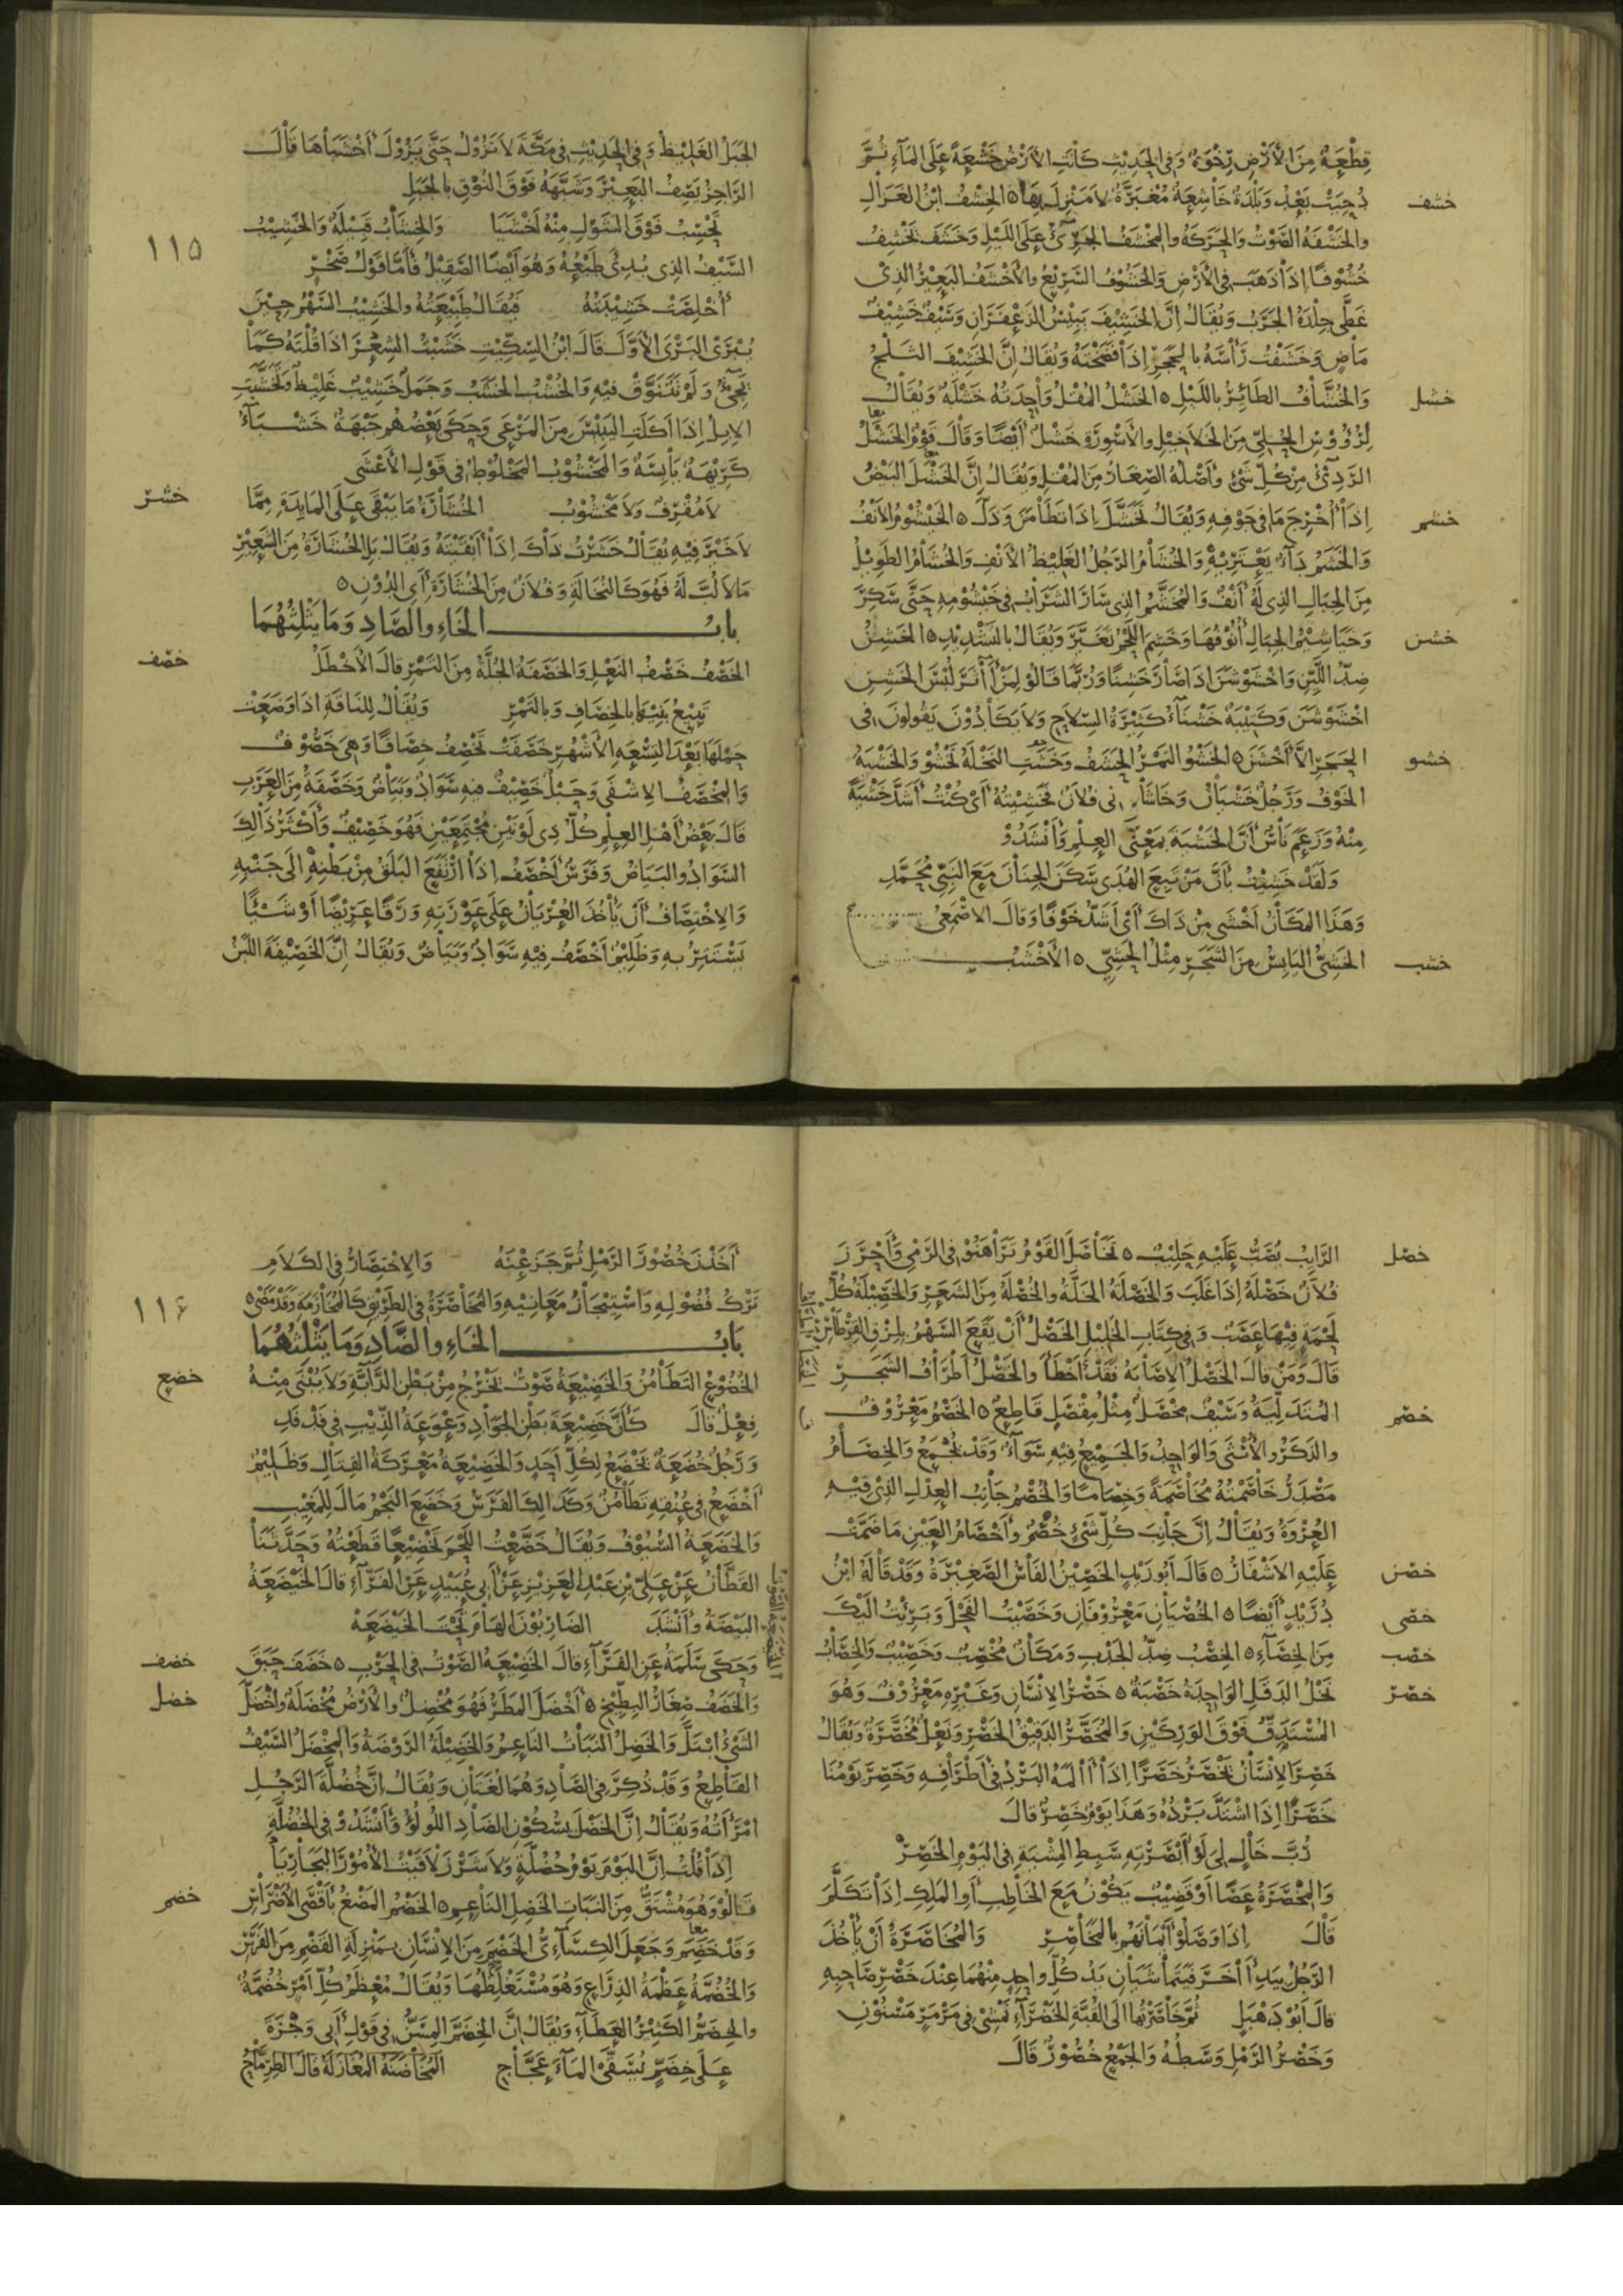 قِطْعَةٌ مِنَ الأَرْضِ رِخْوَةٌ وَفِى الحَدِيْثِ كَانَتِ الأَرْضُ خَشْعَةً عَلَى المَآءِ ثُمَّ
خشف
دُحِيَتْ بَعْدُ وَبَلْدَةٌ خَاشِعَةٌ مُغْبَرَّةٌ لاَ مَنْزِلَ بِهَا ٥ الخِشْفُ ابْنُ الغَزَالِ
والخَشْفَةُ الصَّوْتُ وَالحَرَكَةُ والمِخْشَفُ الجَرِىْءُ عَلَى اللَّيْلِ وَخَشَفَ يَخْشِفُ
خُشُوْفًا اِذَا ذَهَبَ فِى الأَرْضِ وَالخَشُوْفُ السَّرِيْعُ والأَخْشَفُ البَعِيْرُ الذِىْ
غَطَّى جِلْدَهُ الجَرَبُ وَيُقَالُ اِنَّ الخَشِيْفَ يَبِيْسُ الزَعْفَرَانِ وَسَيْفٌ خَشِيْفٌ
مَاضٍ وَخَشَفْتُ رَأْسَهُ بِالحَجَرِ اِذَا فَضَخْتَهُ وَيُقَالُ اِنَّ الخَشِيْفَ الثَّلْجُ
خشل
وَالخُشَّافُ الطَائِرُ بِاللَيْلِ ٥ الخَشْلُ المُقْلُ وَاحِدَتُهُ خَشْلَةٌ وَيُقَالُ
لِرُؤُوْسِ الحُلِىِّ مِنَ الخَلاَخِيْلِ والأَسْوِرَةِ خَشْلٌ اَيْضًا وَقَالَ قَوْمٌ الخَشْلُ
الرَدِئُ مِنْ كُلِّ شَىْءٍ وَأَصْلُهُ الصِغَارُ مِنَ المُقْلِ وَيُقَالُ اِنَّ الخَشْلَ البَيْضُ
خشم
اِذَا أُخْرِجَ مَا فِى جَوْفِهِ وَيُقَالُ تَخَشَّلَ اِذَا تَطَأْمَنَ وَذَلَّ ٥ الخَيْشُوْمُ الأَنْفُ
وَالخَشَمُ دَآءٌ يَعْتَرِيْهِ وَالخُشَامُ الرَجُلُ الغَلِيْظُ الأَنْفِ وَالخُشَامُ الطَوِيْلُ
مِنَ الجِبَالِ الذِى لَهُ أَنْفٌ وَالمُخَشَّمُ الذِى سَارَ الشَرَابُ فِى خَيْشُوْمِهِ حَتَّى سَكِرَ
خشن
وَخَيَاشِيْمُ الجِبَالِ أُنُوْفُهَا وَخَشِمَ اللَحْمُ تَغَيَّرَ وَيُقَالُ بِالتَشْدِيْدِ ٥ الخَشِنُ
ضِدُّ اللَيِّنِ وَاخْشَوْشَنَ اِذَا صَارَ خَشِنًا وَرُبَّمَا قَالُوْا لِمَنْ أَثَرَ لُبْسَ الخَشِنِ
اخْشَوْشَنَ وَكَتِيْبَةٌ خَشْنَآءُ كَثِيْرَةُ السِلاَحِ وَلاَ يَكَادُوْنَ يَقُولُونَ فِى
خشو
الحَجَرِ الاَّ أَخْشَنَ ٥ الخَشْوُ التَمْرُ الحَشَفُ وَخَشَتِ النَخْلَةُ تَخْشُو وَالخَشْيَةُ
الخَوْفُ وَرَجُلٌ خَشْيَانُ وَخَاشَانِى فُلاَنٌ فَخَشَيْتُهُ أَىْ كُنْتُ أَشَدَّ خَشْيَةً
مِنْهُ وَزَعَمَ نَاسٌ أَنَّ الخَشْيَةَ بِمَعْنَى العِلْمِ وَأَنْشَدُوْا
وَلَقَدْ خَشِيْتُ بِأَنَّ مَنْ تَبِعَ الهُدَى سَكَنَ الجِنَانَ مَعَ النَبِىِّ مُحَمَّدِ
وَهَذَا المَكَانُ أَخْشَى مِنْ ذَاكَ أَىْ أَشَدُّ خَوْفًا وَقَالَ الاَصْمَعِىُّ
خشب
الخَشِىُّ اليَابِسُ مِنَ الشَجَرِ مِثْلُ الحَشِىِّ ٥ الأَخْشَبُ
الجَبَلُ الغَلِيْظُ وَفِى الحَدِيْثِ فِى مَكَّةَ لاَ تَزُوْلُ حَتَّى يَزُوْلَ أَخْشَبَاهَا قَالَ
الرَّاجِزُ يَصِفُ البَعِيْرَ وَشَبَّهَهُ فَوْقَ النُوْقِ بِالجَبَلِ
١١٥
تَحْسِبُ فَوْقَ الشَوْلِ مِنْهُ أَخْشَبَا وَالخِشَابُ قَبِيْلَةٌ وَالخَشِيْبُ
السَّيْفُ الذِى بُدِئَ طَبْعُهُ وَهُوَ اَيْضًا الصَقِيْلُ فَأَمَّا قَوْلُ صَخْرٍ
أُخْلِصَتْ خَشِيْبَتُهُ فَيُقَالُ طَبِيْعَتُهُ والخَشِيْبُ السَهْمُ حِيْنَ
يُبْرَى البَرْىَ الأَوَّلَ قَالَ ابْنُ السِكِّيْتِ خَشَبْتُ الشِعْرَ اِذَا قُلْتَهُ كَمَا
يَجِىْءُ وَلَمْ تَتَنَوَّقْ فِيْهِ وَالخُشْبُ الخَشَبُ وَجَمَلٌ خَشِيْبٌ غَلِيْظٌ وَتَخَشَّبَتِ
الاِبِلُ اِذَا أَكَلَتِ اليَبِيْسَ مِنَ المَرْعَى وَحَكَى بَعْضُهُمْ جَبْهَةٌ خَشْبَآءُ
كَرِيْهَةٌ يَابِسَةٌ وَالمَخْشُوْبُ المَخْلُوْطُ فِى قَوْلِ الأَعْشَى
خشر
لاَ مُقْرِفٌ وَلاَ مَخْشُوْبُ الخُشَارَةُ مَا يَبْقَى عَلَى المَايِدَةِ مِمَّا
لاَ خَيْرَ فِيْهِ يُقَالُ خَشَرْتُ ذَاكَ اِذَا أَبْقَيْتَهُ وَيُقَالُ بَلِ الخُشَارَةُ مِنَ الشَّعِيْرِ
مَا لاَ لُبَّ لَهُ فَهُوَ كَالنُخَالَةِ وَفُلاَنٌ مِنَ الخُشَارَةِ أَىِ الدُوْنِ ٥
بابُ الخَاءِ والصَّادِ وَمَا يَثْلِثُهُمَا
خصف
الخَصْفُ خَصْفُ النَعْلِ وَالخَصَفَةُ الجُلَّةُ مِنَ التَمْرِ قَالَ الأَخْطَلُ
تَبِيْعُ بَنِيْهَا بِالخِصَافِ وَبِالتَمْرِ وَيُقَالُ لِلنَاقَةِ اِذَا وَضَعَتْ
حَمْلَهَا بَعْدَ التِسْعَةِ الأَشْهُرِ خَصَفَتْ تَخْصِفُ خِصَافًا وَهِىَ خَصُوْفٌ
وَالمِخْصَفُ الاِشْفَى وَحَبْلٌ خَصِيْفٌ فِيهِ سَوَادٌ وَبَيَاضٌ وَخَصَفَةُ مِنَ العَرَبِ
قَالَ بَعْضُ أَهْلِ العِلْمِ كُلُّ ذِى لَوْنَيْنِ مُجْتَمِعَيْنِ فَهُوَ خَصِيْفٌ وَأَكْثَرُ ذَالِكَ
السَّوَادُ والبَيَاضُ وَفَرَسٌ أَخْصَفُ اِذَا ارْتَفَعَ البَلَقُ مِنْ بَطْنِهِ اِلَى جَنْبِهِ
وَالاِخْتِصَافُ أَنْ يَأْخُذَ العُرْيَانُ عَلَى عَوْرَتِهِ وَرَقًا عَرِيْضًا أَوْ شَيْئًا
يَسْتَتِرُ بِهِ وَظَلِيْمٌ أَخْصَفُ فِيْهِ سَوَادٌ وَبَيَاضٌ وَيُقَالُ اِنَّ الخَصِيْفَةَ اللَبَنُ
خصل
الرَايِبُ يُصَبُّ عَلَيْهِ حَلِيْبٌ ٥ تَخَاصَلَ القَوْمُ تَرَاهَنُوْا فِى الرَمْىِ وَأَحْرَزَ
فُلاَنٌ خَصْلَهُ اِذَا غَلَبَ وَالخَصْلَةُ الخَلَّةُ والخُصْلَةُ مِنَ الشَعَرِ وَالخَصِيْلَةُ كُلُّ
لَحْمَةٍ فِيْهَا عَصَبٌ وَفِى كِتَابِ الخَلِيْلِ الخَصْلُ أَنْ يَقَعَ السَهْمُ بِلِزْقِ القِرْطَاسِ
قَالَ وَمَنْ قَالَ الخَصْلُ الاِصَابَةُ فَقَدْ أَخْطَأَ والخَصْلُ أَطْرَافُ الشَجَرِ
خصم
المُتَدَلِّيَةُ وَسَيْفٌ مِخْصَلٌ مِثْلُ مِقْصَلٍ قَاطِعٌ ٥ الخَصْمُ مَعْرُوْفٌ
والذَكَرُ والأُنْثَى وَالوَاحِدُ وَالجَمِيْعُ فِيْهِ سَوَآءٌ وَقَدْ يُجْمَعُ وَالخِصَامُ
مَصْدَرُ خَاصَمْتُهُ مُخَاصَمَةً وَخِصَامًا وَالخُصْمُ جَانِبُ العِدْلِ الذِىْ فِيْهِ
العُرْوَةُ وَيُقَالُ اِنَّ جَانِبَ كُلِّ شَىْءٍ خُصْمٌ وأَخْصَامُ العَيْنِ مَا ضَمَّتْ
خصن
عَلَيْهِ الاَشْفَارُ ٥ قَالَ أَبُو زَيْدٍ الخَصِيْنُ الفَأْسُ الصَغِيْرَةُ وَقَدْ قَالَهُ ابْنُ
خصى
دُرَيْدٍ أَيْضًا ٥ الخُصْيَانِ مَعْرُوْفَانِ وَخَصَيْتُ الفَحْلَ وَبَرِئْتُ اِلَيْكَ
خصب
مِنَ الخِصَآءِ ٥ الخِصْبُ ضِدُّ الجَدْبِ وَمَكَانٌ مُخْصِبٌ وَخَصِيْبٌ وَالخِصَابُ
خصر
نَخْلُ الدَقَلِ الوَاحِدَةُ خَصْبَةٌ ٥ خَصْرُ الاِنْسَانِ وَغَيْرِهِ مَعْرُوْفٌ وَهُوَ
المُسْتَدَقُّ فَوْقَ الوَرِكَيْنِ وَالمُخَصَّرُ الدَقِيْقُ الخَصْرِ وَنَعْلٌ مُخَصَّرَةٌ وَيُقَالُ
خَصِرَ الاِنْسَانُ يَخْصَرُ خَصَرًا اِذَا أَلمَهُ البَرْدُ فِى أَطْرَافِهِ وَخَصِرَ يَوْمُنَا
خَصَرًا اِذَا اشْتَدَّ بَرْدُهُ وَهَذَا يَوْمٌ خَصِرٌ قَالَ
رُبَّ خَالٍ لِىَ لَوْ أَبْصَرْتِهِ سَبِطِ المِشْيَةِ فِى اليَوْمِ الخَصِرْ
وَالمِخْصَرَةُ عَصًا أَوْ قَضِيْبٌ يَكُوْنُ مَعَ الخَاطِبِ أَوِ المَلِكِ اِذَا تَكَلَّمَ
قَالَ اِذَا وَصَلُوْا أَيْمَانَهُمْ بِالمَخَاصِرِ وَالمُخَاصَرَةُ أَنْ يَأْخُذَ
الرَجُلُ بِيَدِ أَخَرَ فَيَتَمَاشَيَانِ يَدُ كُلِّ وَاحِدٍ مِنْهُمَا عِنْدَ خَصْرِ صَاحِبِهِ
قَالَ أَبُوْ دَهْبَلٍ ثُمَّ خَاصَرْتُهَا اِلَى القُبَّةِ الخَضْرَآءِ تَمْشِىْ فِى مَرْمَرٍ مَسْنُوْنِ
وَخَصْرُ الرَمْلِ وَسَطُهُ وَالجَمْعُ خُصُوْرٌ قَالَ
أَخَذْنَ خُصُوْرَ الرَمْلِ ثُمَّ جَزَعْنَهُ وَالاِخْتِصَارُ فِى الكَلاَمِ
١١٦
تَرْكُ فُضُوْلِهِ وَاسْتِيْجَازُ مَعَانِيْهِ وَالمُخَاصَرَةُ فِى الطَرِيْقِ كَالمُخَازَمَةِ وَقَدْ مَضَى ٥
بَابُ الخَاءِ والضَّادِ وَمَا يَثْلِثُهُمَا
خضع
الخُضُوْعُ التَطَأْمُنُ وَالخَضِيْعَةُ صَوْتٌ يَخْرُجُ مِنْ بَطْنِ الدَّابَّةِ وَلاَ يُبْنَى مِنْهُ
فِعْلٌ قَالَ كَأَنَّ خَضِيْعَةَ بَطْنِ الجَوَادِ وَعْوَعَةُ الذِيْبِ فِى فَدْفَدِ
وَرَجُلٌ خُضَعَةٌ يَخْضَعُ لِكُلِّ أَحَدٍ وَالخَضِيْعَةُ مَعْرَكَةُ القِتَالِ وَظَلِيْمٌ
أَخْضَعُ فِى عُنُقِهِ تَطَأْمُنٌ وَكَذَالِكَ الفَرَسُ وَخَضَعَ النَجْمُ مَالَ لِلْمَغِيْبِ
وَالخَضَعَةُ السُيُوْفُ وَيُقَالُ خَضَّعْتُ اللَحْمَ تَخْضِيْعًا قَطَعْتُهُ وَحَدَّثَنَا
القَطَّانُ عَنْ عَلِىِّ بْنِ عَبْدِ العَزِيْزِ عَنْ أَبِى عُبَيْدٍ عَنِ الفَرَّآءِ قَالَ الخَيْضَعَةُ
البَيْضَةُ وَأَنْشَدَ الضَارِبُوْنَ الهَامَ تَحْتَ الخَيْضَعَهْ
خضف
وَحَكَى سَلَمَةُ عَنِ الفَرَّآءِ قَالَ الخَضِيْعَةُ الصَوْتُ فِى الحَرْبِ ٥ خَضَفَ حَبَقَ
خضل
وَالخَضَفُ صِغَارُ البِطِّيْخِ ٥ أَخْضَلَ المَطَرُ فَهُوَ مُخْضِلٌ والأَرْضُ مُخْضَلَةٌ وَاخْضَلَّ
الشَىْءُ ابْتَلَّ وَالخَضِلُ النَبَاتُ النَاعِمُ وَالخَضِيْلَةُ الرَوْضَةُ وَالمِخْضَلُ السَيْفُ
القَاطِعُ وَقَدْ ذُكِرَ فِى الصَادِ وَهُمَا لُغَتَانِ وَيُقَالُ اِنَّ خُضُلَّةَ الرَجُلِ
امْرَأَتُهُ وَيُقَالُ اِنَّ الخَضْلَ بِسُكُوْنِ الضَادِ اللُؤلُؤُ وَأَنْشَدُوْا فِى الخُضُلَّةِ
اِذَا قُلْتُ اِنَّ اليَوْمَ يَوْمُ خُضُلَّةٍ وَلاَ شَرْزَ لاَقَيْتُ الأُمُوْرَ البَجَارِيَا
خضم
قَالُوْا وَهُوَ مُشْتَقٌّ مِنَ النَبَاتِ الخَضِلِ النَاعِمِ ٥ الخَضْمُ المَضْغُ بِأَقْصَى الأَضْرَاسِ
وَقَدْ خَضِمَ وَجَعَلَ الكِسَآءِىُّ الخَضْمَ مِنَ الاِنْسَانِ بِمَنْزِلَةِ القَضْمِ مِنَ الفَرَسِ
وَالخُضُمَّةُ عَظْمَةُ الذِرَاعِ وَهُوَ مُسْتَغْلَظُهَا وَيُقَالُ مُعْظَمُ كُلِّ أَمْرٍ خُضُمَّةٌ
والخِضَمُّ الكَثِيْرُ العَطَآءِ وَيُقَالُ اِنَّ الخِضَمَّ المِسَنُّ فِى قَوْلِ أَبِى وَجْزَةَ
عَلَى خِضَمٍّ يُسَقَّى المَآءَ عَجَّاجِ المُخَاضَنَةُ المُغَازَلَةُ قَالَ الطِرِمَّاحُ